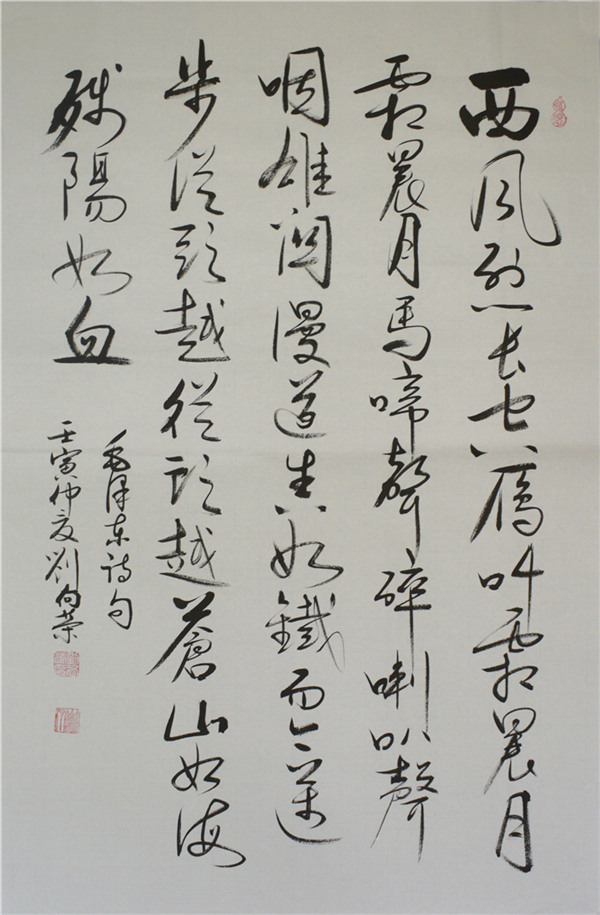 西风烈长空雁叫霜晨月
霜晨月馬啼聲碎喇叭聲
咽雄関漫道真如鐵而今邁
步從頭越從頭越蒼山如海
殘陽如血
毛泽东诗句
壬寅仲夏劉向荣